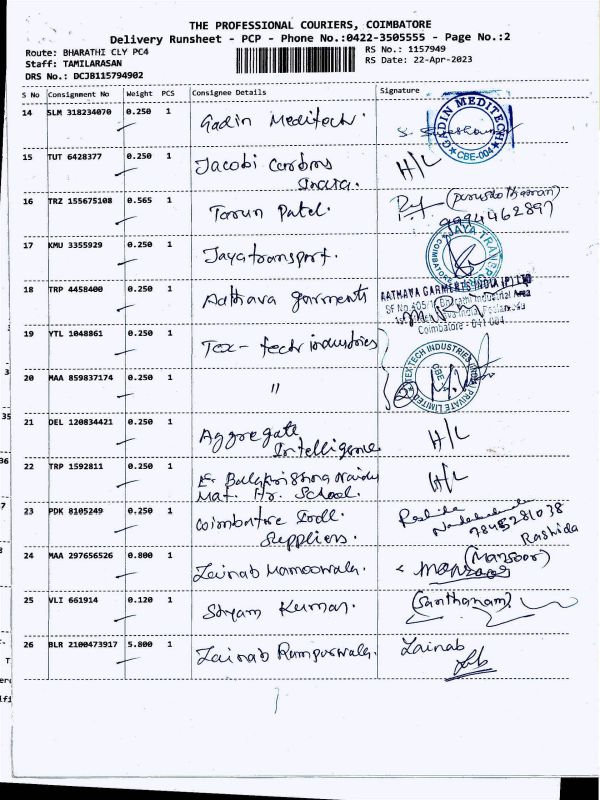 THE PROFESSIONAL COURIERS, COIMBATORE
Delivery Runsheet - PCP - Phone No.:0422-3505555 - Page No.:2
Route: BHARATHI CLY PC4
RS No.: 1157949
Staff: TAMILARASAN
RS Date: 22-Apr-2023
DRS No.: DCJB115794902
S No Consignment No Weight PCS Consignee Details Signature
14 SLM 318234070 0.250 1 Gadin Meditech.
GADIN MEDITECH
CBE-004
15 TUT 6428377 0.250 1 Jacobi Carbons H/L
16 TRZ 155675108 0.565 1 Tarun Patel.
9994462897
17 KMU 3355929 0.250 1 Jayatransport.
JAYA TRA
COIMBATO
18 TRP 4458400 0.250 1 Aathava garments
AATHAVA GARMENTS INDIA (P) LTD
SF No 405/1 Bharathi Industrial Area
Coimbatore - 641 004
19 YTL 1048861 0.250 1 Tex-tech industries
TEX TECH INDUSTRIES (INDIA) PRIVATE LIMITED
CBE
20 MAA 859837174 0.250 1 "
2
21 DEL 120834421 0.250 1 Aggregate
Intelligence H/L
22 TRP 1592811 0.250 1 K. Balakrishna Naidu H/L
Mat. Hr. School.
23 PDK 8105249 0.250 1 Coimbatore Indl.
Suppliers.
7845281038
Rashida
24 MAA 297656526 0.800 1 Zainab Mamoowala. (Mansoor)
Mansoor
25 VLI 661914 0.120 1 Shyam Kumar. (Santhanam)
26 BLR 2100473917 5.800 1 Zainab Rampurwala. Zainab